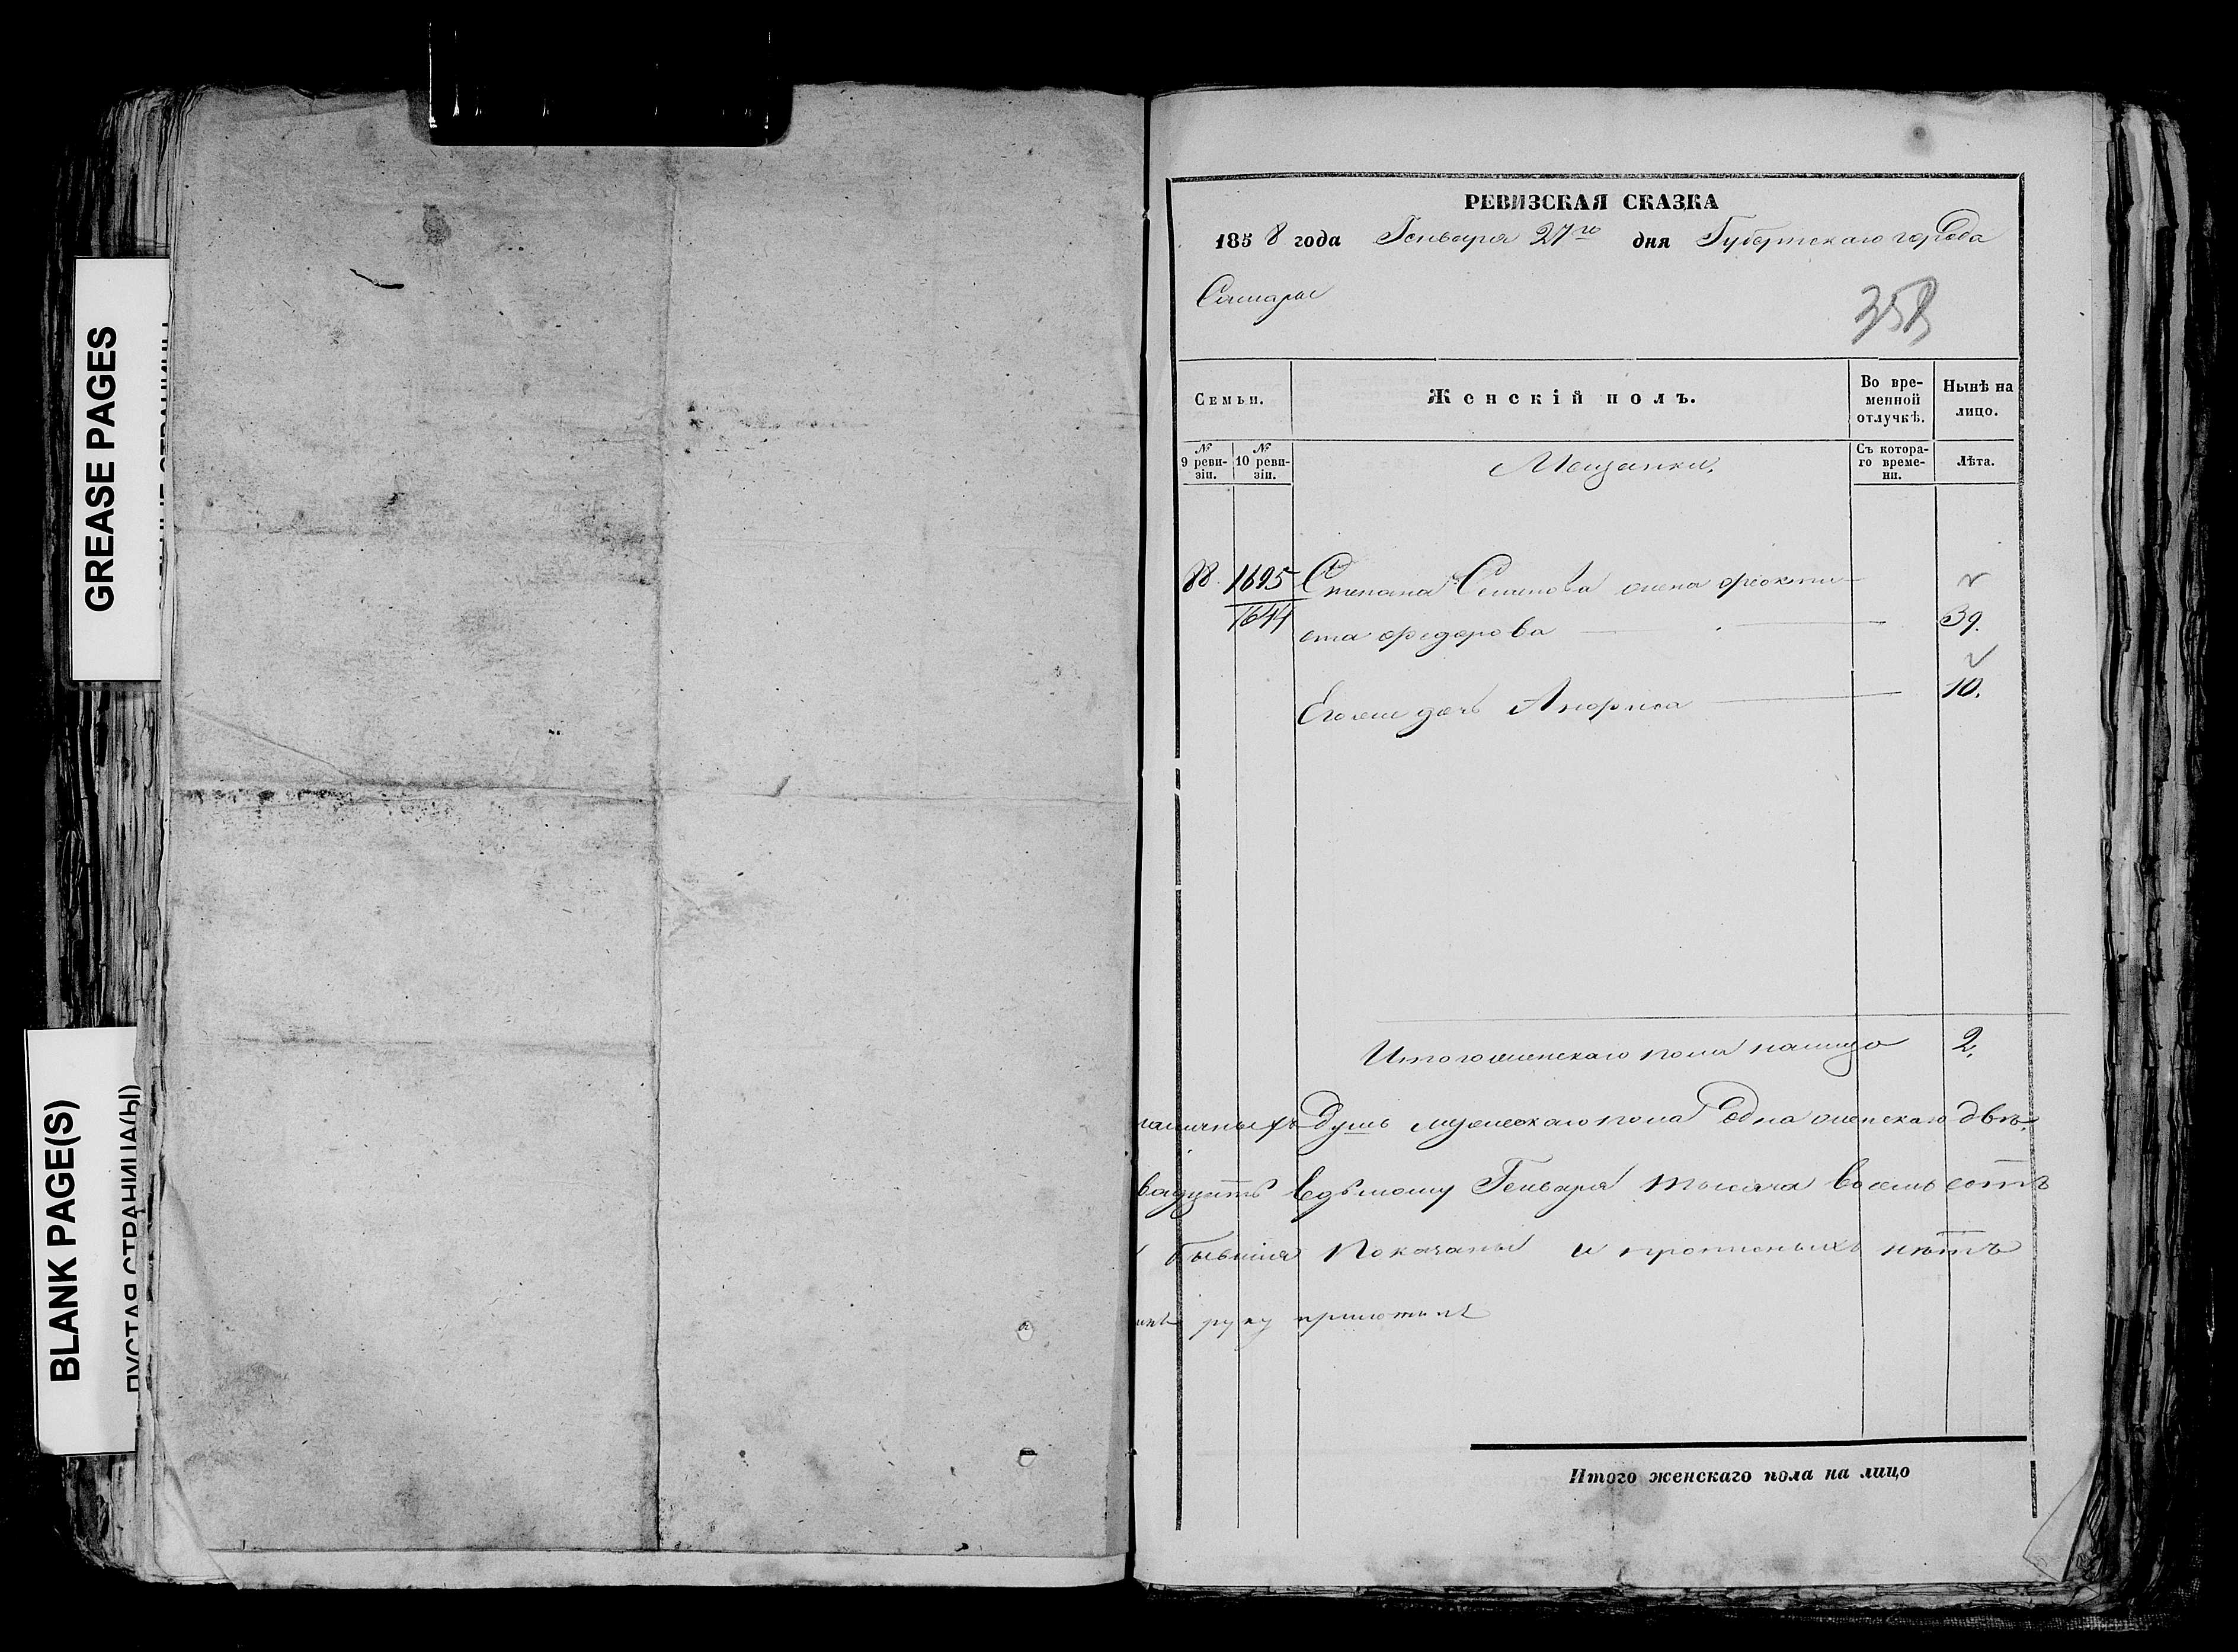 GREASE PAGES
BLANK PAGE(S)
ПУСТАЯ СТРАНИЦА(Ы)
РЕВИЗСКАЯ СКАЗКА
1858 года Генваря 27го дня Губернскаго города
Самары
358
Семьи.
Женскій полъ.
Во вре-
менной
отлучкѣ.
Нынѣ на
лицо.
№
9 реви-
зіи.
№
10 реви-
зіи.
Мещанки.
Съ котора-
го време-
ни.
Лѣта.
88. 1695 Степана Семенова жена Феокти-
1644 ста Федорова 39.
Его же дочь Анфиса 10.
Итого женскаго пола налицо 2.
душь мужескаго пола одна женскаго двѣ.
седьмому Генваря тысяча восемь сотъ
бывшія показаны и прописныхъ нѣтъ
руку приложилъ
Итого женскаго пола на лицо